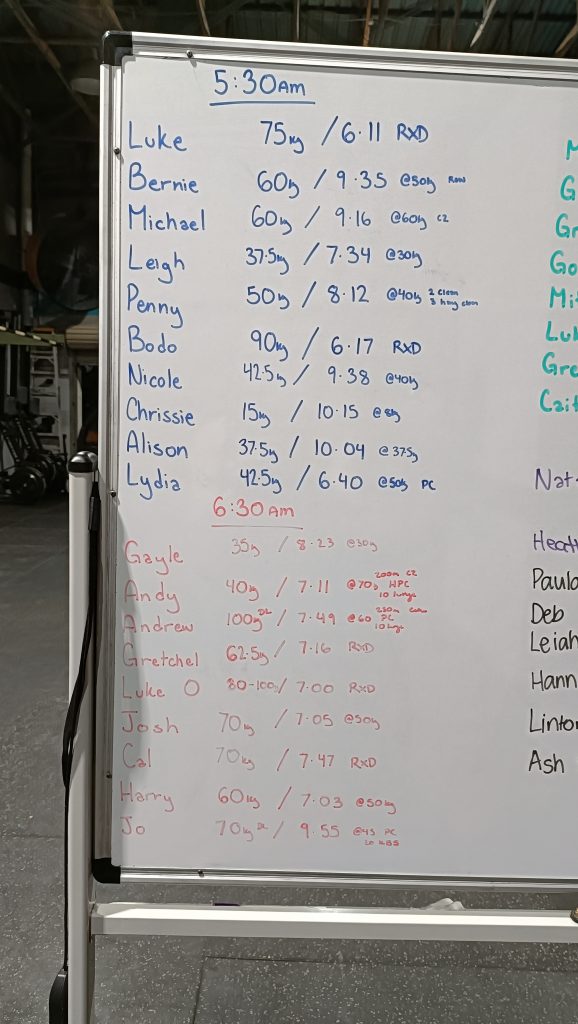 5:30am
Luke 75kg / 6.11 RXD
Bernie 60kg / 9.35 @50kg Row
Michael 60kg / 9.16 @60kg C2
Leigh 37.5kg / 7.34 @30kg
Penny 50kg / 8.12 @40kg 2 clean
3 hang clean
Bodo 90kg / 6.17 RXD
Nicole 42.5kg / 9.38 @40kg
Chrissie 15kg / 10.15 @8kg
Alison 37.5kg / 10.04 @37.5kg
Lydia 42.5kg / 6.40 @50kg PC
6:30am
Gayle 35kg / 8.23 @30kg
Andy 40kg / 7.11 @70kg 200m C2
HPC
10 lunge
Andrew 100kg DL / 7.49 @60 250m
PC
10 lunge
Gretchel 62.5kg / 7.16 RXD
Luke O 80-100kg / 7.00 RXD
Josh 70kg / 7.05 @50kg
Cal 70kg / 7.47 RXD
Harry 60kg / 7.03 @50kg
Jo 70kg DL / 9.55 @45 PC
20 KBS
M
G
Gr
Go
Mi
Luk
Gre
Cait
Nat
Heath
Paula
Deb
Leiah
Hann
Linton
Ash